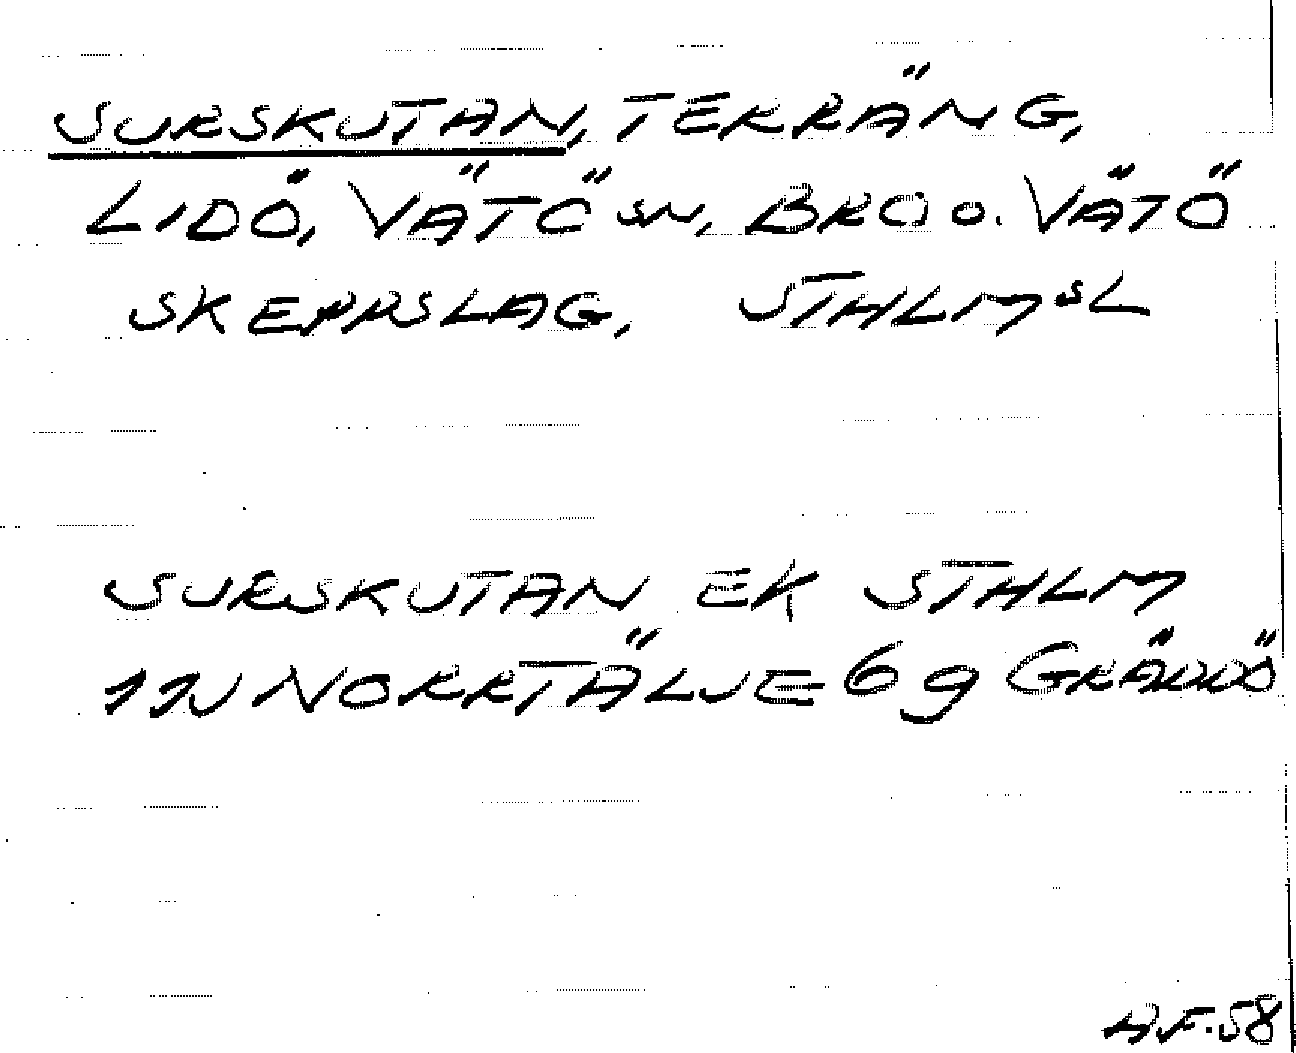 SURSKUTAN, TERRÄNG,
LIDÖ, VÄTÖ sn, BRO o. VÄTÖ
SKEPPSLAG, STHLMSL
SURSKUTAN EK STHLM
11J NORRTÄLJE 6 g GRÄDDÖ
A.F. 58